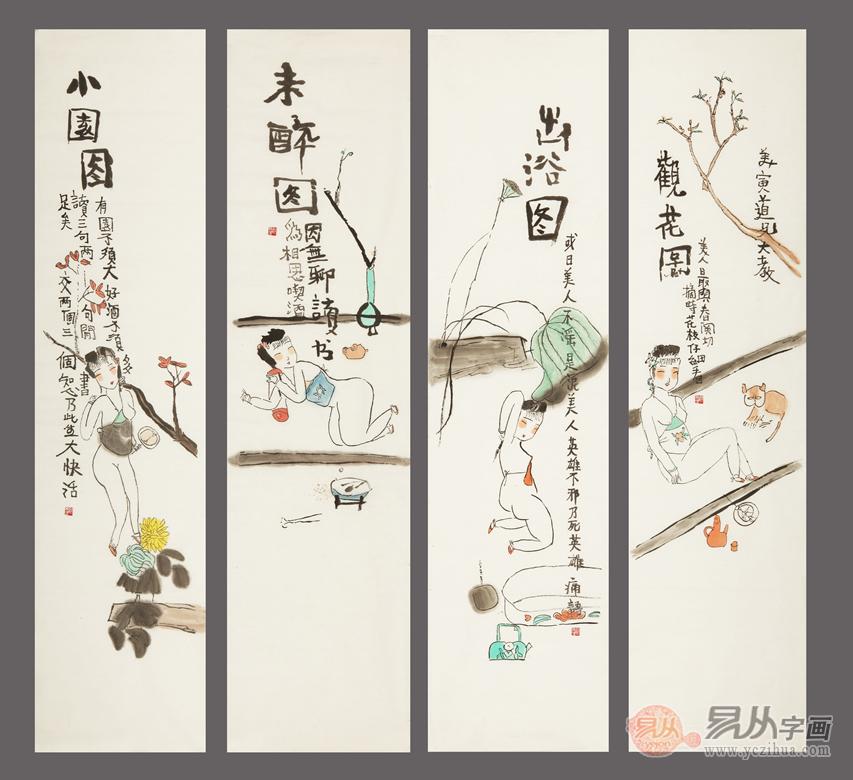 小園图
有園不須大好酒不須多
讀三句两句閒書
交两個三個知己乃此生大快活
足矣
未醉图
因無聊讀书
為相思喫酒
出浴图
或曰美人不淫是泥美人英雄不邪乃死英雄痛語
觀花圖
美寅道兄大教
美人
摘時花枝休
易从
易从字画
www.yczihua.com